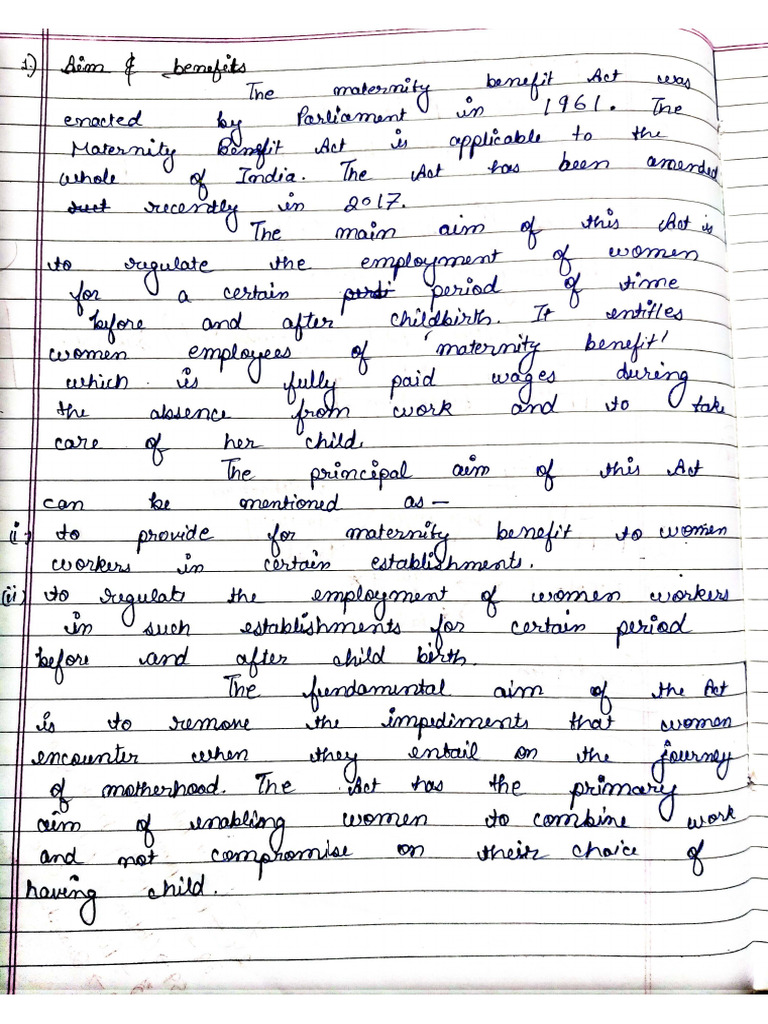 1.) Aim & benefits
The maternity benefit Act was
enacted by Parliament in 1961. The
Maternity Benefit Act is applicable to the
whole of India. The Act has been amended
recently in 2017.
The main aim of this Act is
to regulate the employment of women
for a certain period of time
before and after childbirth. It entitles
women employees of 'maternity benefit'
which is fully paid wages during
the absence from work and to take
care of her child.
The principal aim of this Act
can be mentioned as –
(i) to provide for maternity benefit to women
workers in certain establishments.
(ii) to regulate the employment of women workers
in such establishments for certain period
before and after child birth.
The fundamental aim of the Act
is to remove the impediments that women
encounter when they entail on the journey
of motherhood. The Act has the primary
aim of enabling women to combine work
and not compromise on their choice of
having child.